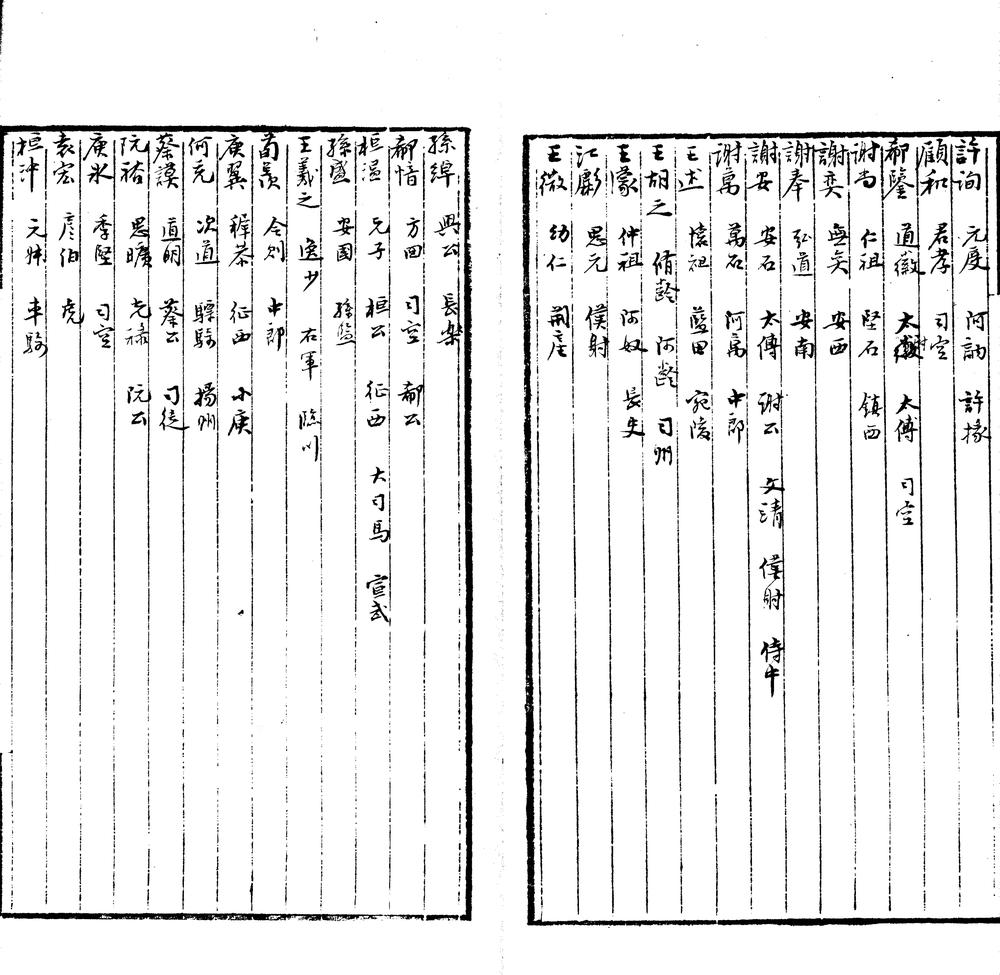 許詢 元度 阿訥 許掾
顧和 君孝 司空
郗鑒 道徽 太尉 太傅 司空
謝尚 仁祖 堅石 鎮西
謝奕 無奕 安西
謝奉 弘道 安南
謝安 安石 太傅 謝公 文清 僕射 侍中
謝萬 萬石 阿萬 中郎
王述 懷祖 藍田 宛陵
王胡之 脩齡 阿齡 司州
王濛 仲祖 阿奴 長史
江彪 思元 僕射
王微 幼仁 荊産
孫綽 興公 長樂
郗愔 方回 司空 郗公
桓溫 元子 桓公 征西 大司馬 宣武
孫盛 安國 孫監
王羲之 逸少 右軍 臨川
荀羨 令則 中郎
庾翼 穉恭 征西 小庾
何充 次道 驃騎 揚州
蔡謨 道明 蔡公 司徒
阮裕 思曠 光祿 阮公
庾氷 季堅 司空
袁宏 彦伯 虎
桓沖 元叔 車騎